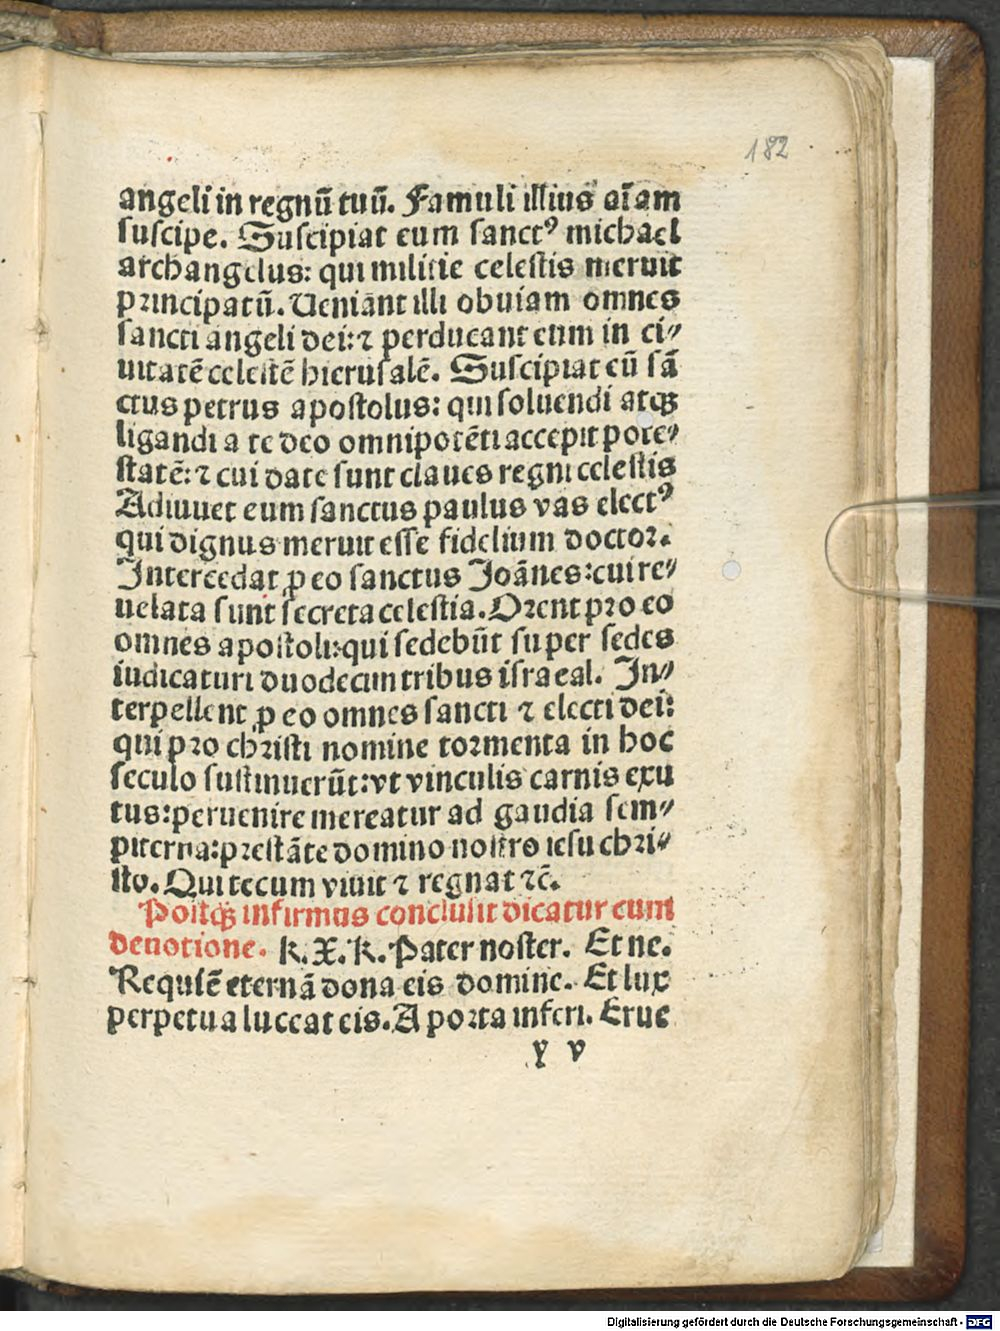 182
angeli in regnū tuū. Famuli illius aīam
suscipe. Suscipiat eum sanctꝰ michael
archangelus: qui militie celestis meruit
principatū. Ueniant illi obuiam omnes
sancti angeli dei: ⁊ perducant eum in ci⸗
uitatē celestē hierusalē. Suscipiat eū sā
ctus petrus apostolus: qui soluendi atqꝫ
ligandi a te deo omnipotēti accepit pote⸗
statē: ⁊ cui date sunt claues regni celestis
Adiuuet eum sanctus paulus vas electꝰ
qui dignus meruit esse fidelium doctor.
Intercedat ꝓ eo sanctus Joānes: cui re⸗
uelata sunt secreta celestia. Orent pro eo
omnes apostoli: qui sedebūt super sedes
iudicaturi duodecim tribus israeal. In⸗
terpellent ꝓ eo omnes sancti ⁊ electi dei:
qui pro christi nomine tormenta in hoc
seculo sustinuerūt: vt vinculis carnis exu
tus: peruenire mereatur ad gaudia sem⸗
piterna: prestāte domino nostro iesu chri⸗
sto. Qui tecum viuit ⁊ regnat ⁊ē.
Postqꝫ infirmus conclusit dicatur cum
deuotione. k. X. k. Pater noster. Et ne.
Requiē eternā dona eis domine. Et lux
perpetua luceat eis. A porta inferi. Erue
y v
Digitalisierung gefördert durch die Deutsche Forschungsgemeinschaft - DFG